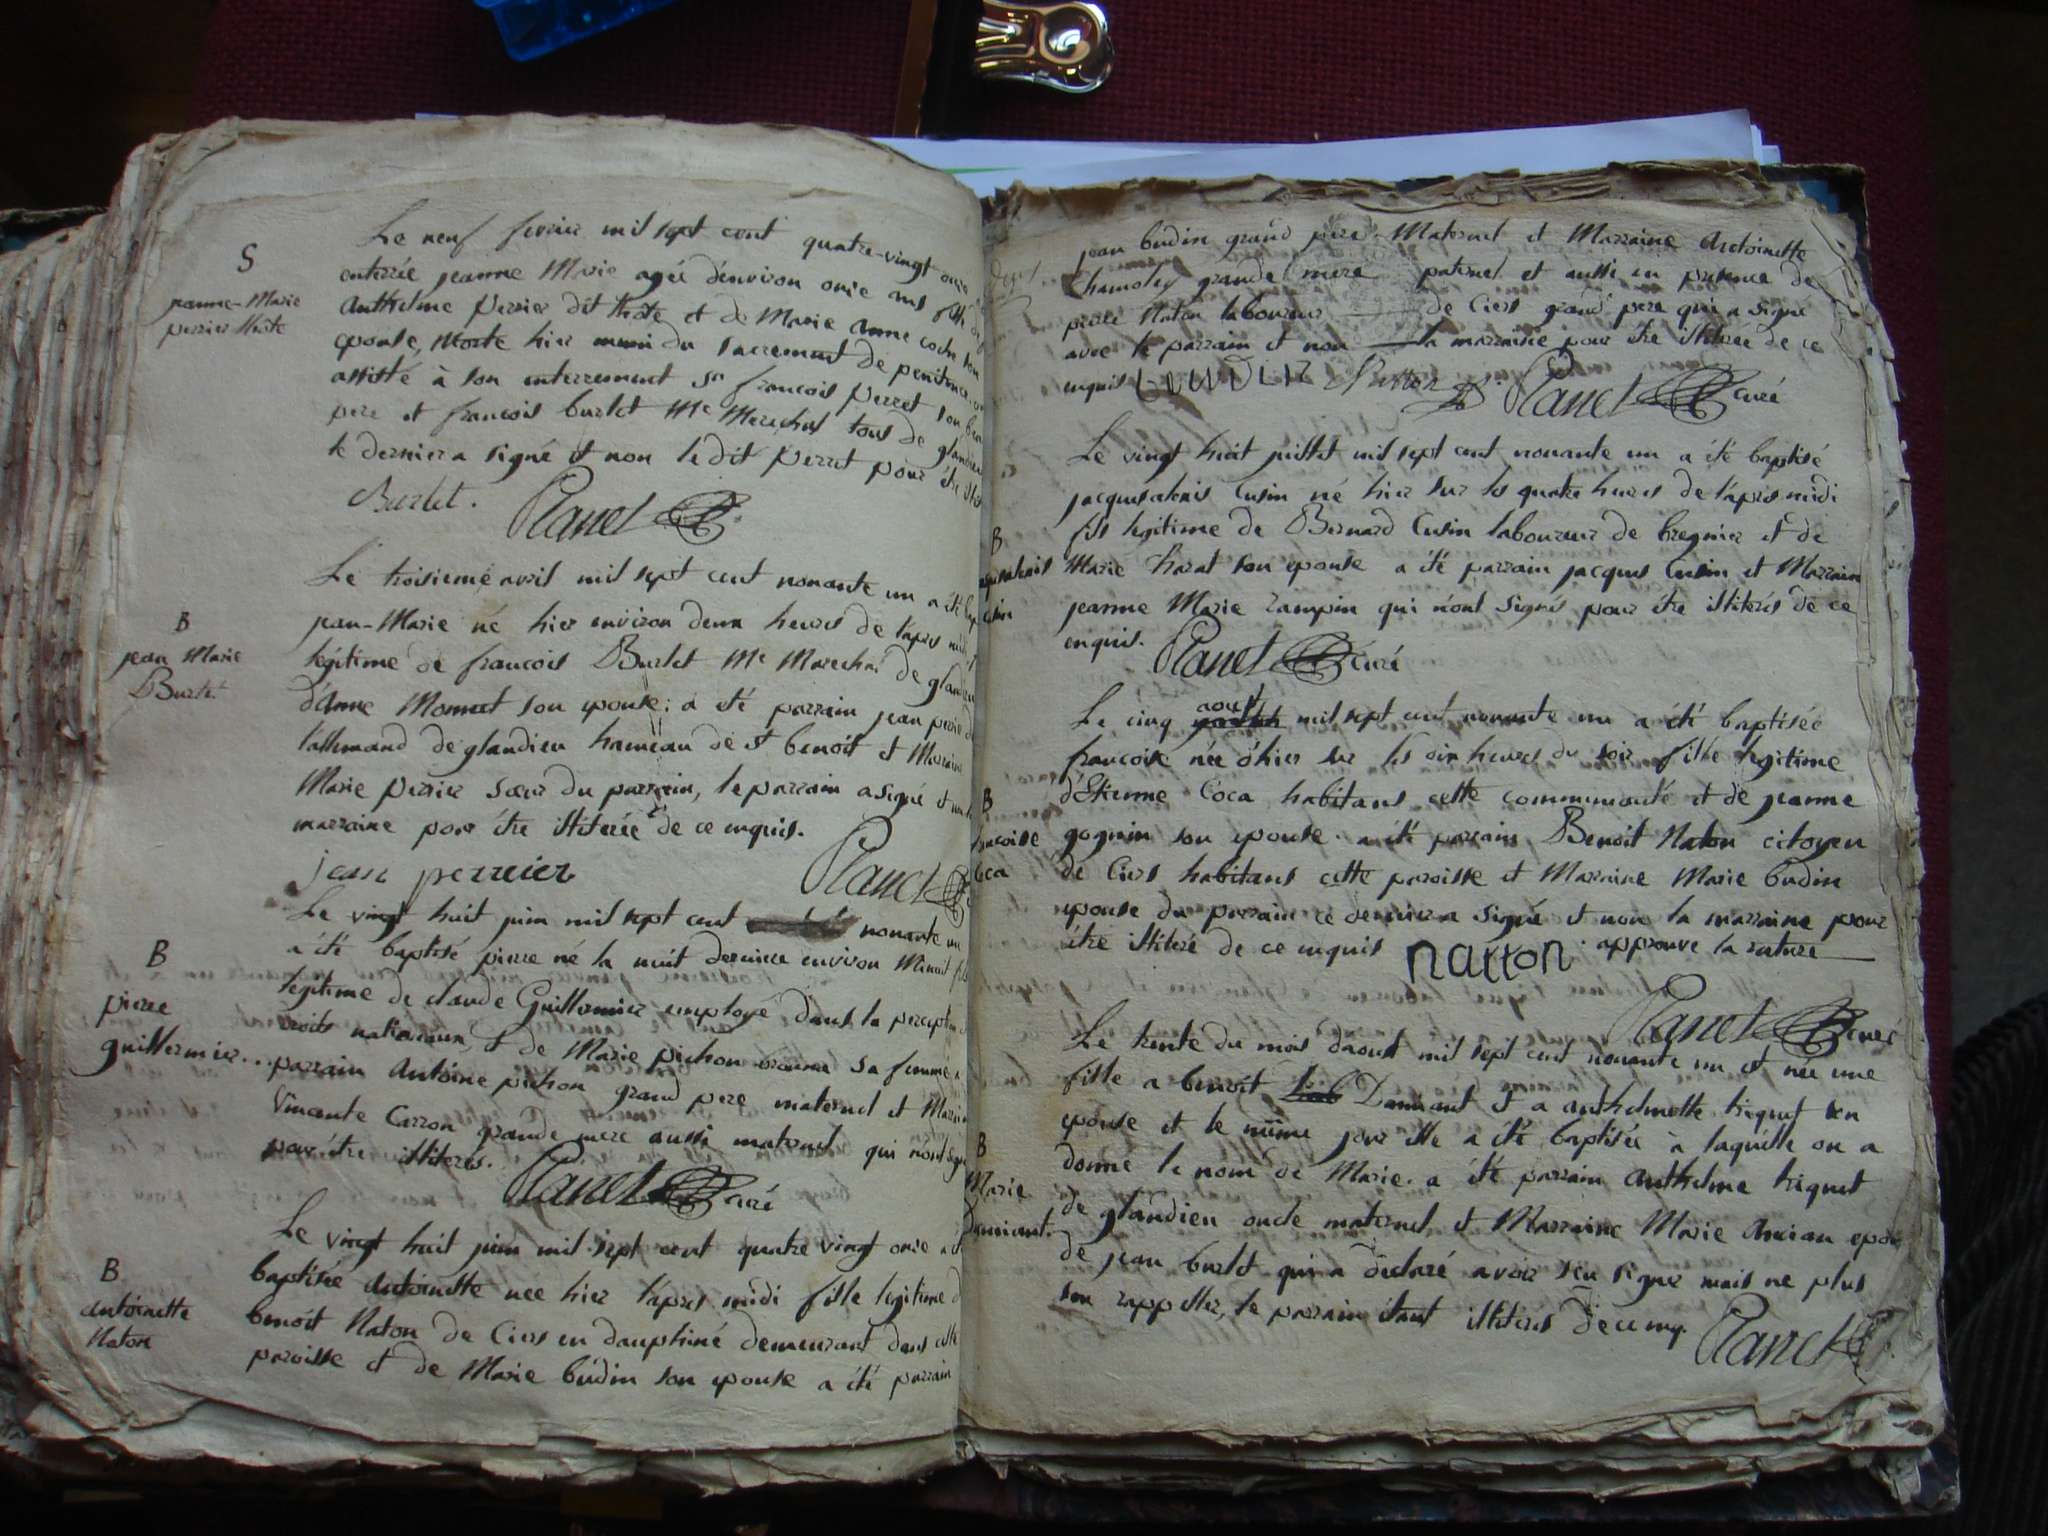 S
jeanne-Marie
perrier thote
Le neuf fevrier mil sept cent quatre-vingt onze
enterrée jeanne Marie agée d'environ onze ans fille
Anthelme perrier dit thote et de Marie Anne coche son
epouse, morte hier muni du sacrement de penitence
assisté à son enterrement Sr francois perret son beau
pere et francois burlet Me Marechal tous de glandieu
le dernier a signé et non le dit perret pour être
Burlet. Planet
B
jean Marie
Burlet
Le troisieme avril mil sept cent nonante un a été
jean-Marie né hier environ deux heures de l'apres midi
legitime de francois Burlet Me Marechal de glandieu
d'Anne Monnet son epouse; a été parrain jean perrier
l'allemand de glandieu hameau de St benoit et Marraine
Marie perrier sœur du parrain, le parrain a signé et non la
marraine pour être illiterée de ce enquis.
jean perreier Planet
B
pierre
guillermier..
Le vingt huit juin mil sept cent nonante un
a été baptisé pierre né la nuit derniere environ Minuit fils
legitime de claude Guillermier employé dans la perception
droits nationaux, et de Marie pichon sa femme a
parrain Antoine pichon grand pere maternel et Marraine
Vincente Carron grande mere aussi maternel qui n'ont signé
pour être illiterés. Planet curé
B
antoinette
Naton
Le vingt huit juin mil sept cent quatre vingt onze a été
baptisée Antoinette nee hier l'apres midi fille legitime d
benoit Naton de Ciers en dauphiné demeurant dans cette
paroisse et de Marie budin son epouse a été parrain
jean budin grand pere Maternel et Marraine Antoinette
Chamoley grande mere paternel et aussi en presence de
pierre Naton laboureur de Ciers grand pere qui a signé
avec le parrain et non la marraine pour être illiterée de ce
enquis Planet curé
B
cusin
Le vingt huit juillet mil sept cent nonante un a été baptisé
jacques alexis Cusin né hier sur les quatre heures de l'apres midi
fils legitime de Bernard Cusin laboureur de bregnier et de
Marie son epouse a été parrain jacques Cusin et Marraine
jeanne Marie rampin qui n'ont signés pour être illiterés de ce
enquis. Planet curé
B
francoise
Coca
aoust
Le cinq mil sept cent nonante un a été baptisée
francoise née d'hier sur les dix heures du soir fille legitime
d'Etienne Coca habitans cette communauté et de jeanne
gognin son epouse. a été parrain Benoit Naton citoyen
de Ciers habitans cette paroisse et Marraine Marie budin
epouse du parrain ce dernier a signé et non la marraine pour
être illiteré de ce enquis natton. approuve la rature
Planet curé
B
Marie
Damiant.
Le trente du mois d'aoust mil sept cent nonante un et née une
fille a benoit Damiant et a anthelmette triquet son
epouse et le même jour elle a été baptisée à laquelle on a
donné le nom de Marie. a été parrain anthelme triquet
de glandieu oncle maternel et Marraine Marie Ancian epouse
de jean burlet qui a declaré avoir seu signer mais ne plus
son rappeller, le parrain étant illiterés de ce enq.
Planet